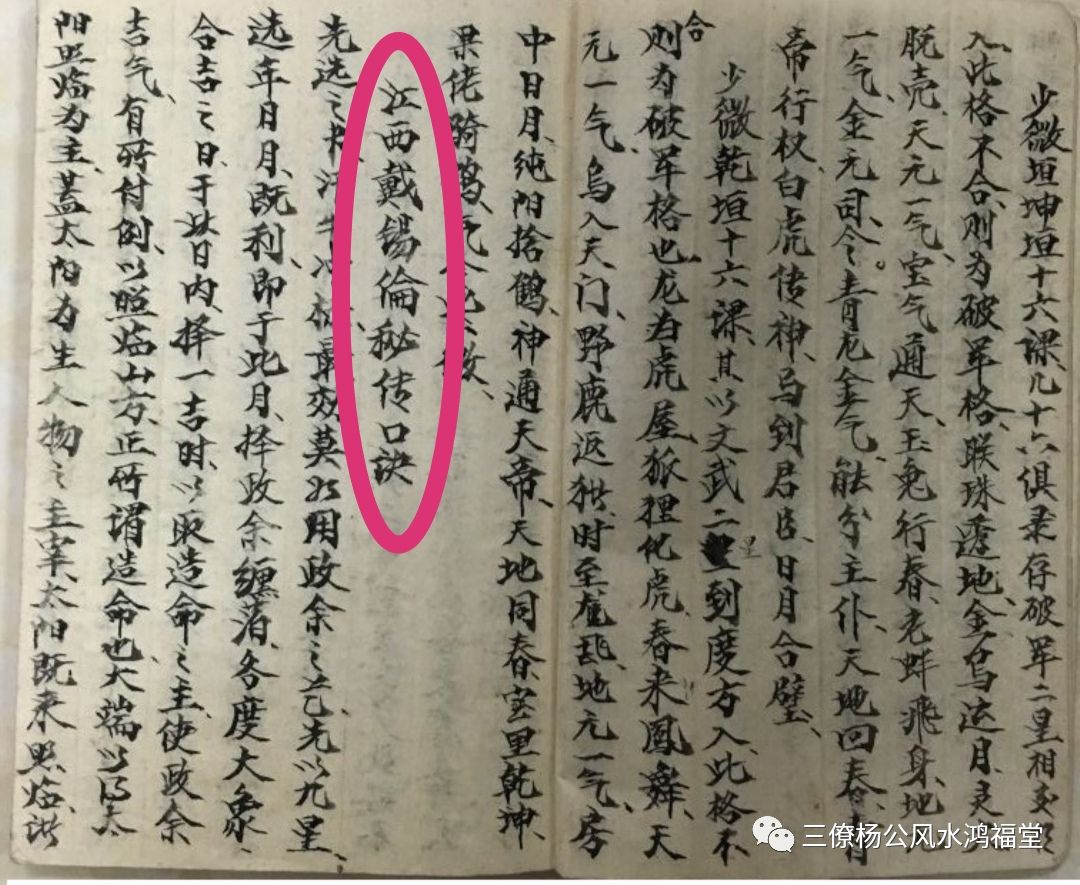 少微垣坤垣十六课、凡十六俱录存破军二星相交
入此格不合、则为破军格、联珠透地、金乌运月、灵
脱壳、天元一气、宝气通天、玉兔行春、老蚌飞身、地
一气、金元司令。青龙金气、能分主仆、天地回春、青
帝行权、白虎传神、马到君臣、日月合璧、
少微乾垣十六课、其以文武二星到度方入此格不
合则为破军格也、龙为虎屋、狐狸化虎、春来凤舞、天
元一气、乌入天门、野鹿返、时至、地元一气、房
中日月、纯阳捨鹤、神通天帝、天地同春、壶里乾坤、
果佬骑鹤、
江西戴锡倫秘传口诀
先选之最效莫如用政余之艺、先以九星、
选年月、月既利、即于此月、择政余缠落、各度大象
合吉之日、于此日内、择一吉时、以取造命之主、使政余
吉气、有所付倒、以照临山方、正所谓造命也、大端以得太
阳照临为主、盖太阳为生人物之主宰、太阳既来照临、诸
三僚杨公风水鸿福堂